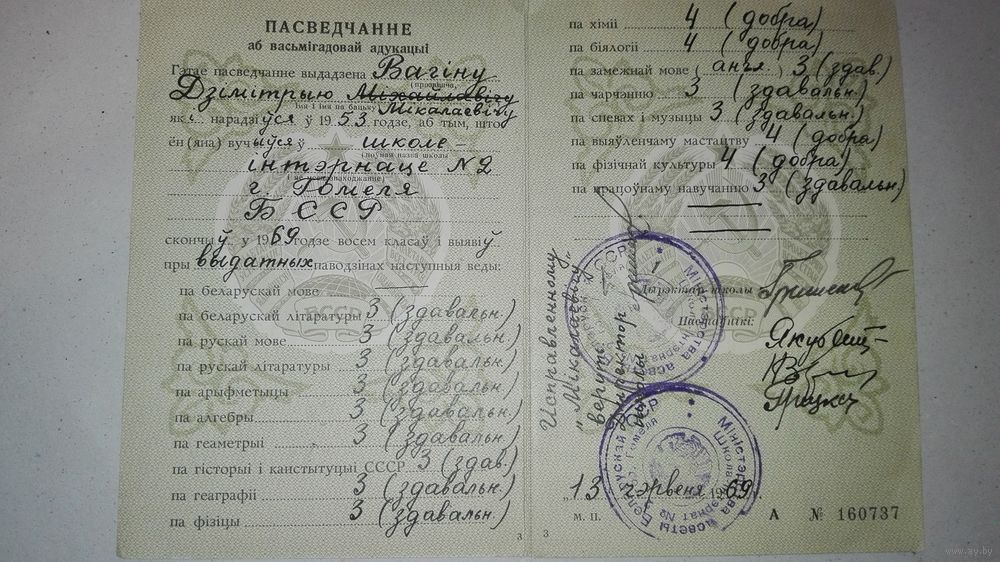 ПАСВЕДЧАННЕ
аб васьмігадовай адукацыі
Гэтае пасведчанне выдадзена Вагіну
(прозвішча,
Дзімітрыю Міхайлавічу
імя і імя па бацьку)
Мікалаевічу
які нарадзіўся ў 1953 годзе, аб тым, што
ён (яна) вучыўся ў школе-
(поўная назва школы
інтэрнаце N2
і яе месцазнаходжанне)
г. Гомеля
БССР
скончыў у 1969 годзе восем класаў і выявіў
пры выдатных паводзінах наступныя веды:
па беларускай мове —
па беларускай літаратуры 3 (здавальн.)
па рускай мове 3 (здавальн.)
па рускай літаратуры 3 (здавальн.)
па арыфметыцы 3 (здавальн.)
па алгебры 3 (здавальн.)
па геаметрыі 3 (здавальн.)
па гісторыі і канстытуцыі СССР 3 (здав.)
па геаграфіі 3 (здавальн.)
па фізіцы 3 (здавальн.)
3
па хіміі 4 (добра)
па біялогіі 4 (добра)
па замежнай мове (англ.) 3 (здав.)
па чарчэнню 3 (здавальн.)
па спевах і музыцы 3 (здавальн.)
па выяўленчаму мастацтву 4 (добра)
па фізічнай культуры 4 (добра)
па працоўнаму навучанню 3 (здавальн)
Исправленному
"Мікалаевічу"
верить
Директор
школы
Дырэктар школы
Настаўнікі:
БССР
Міністэрства асветы Беларускай ССР
Школа-інтэрнат №
г. Гомеля
"13" чэрвеня 1969 г.
М. П.
А № 160737
3
www.ay.by